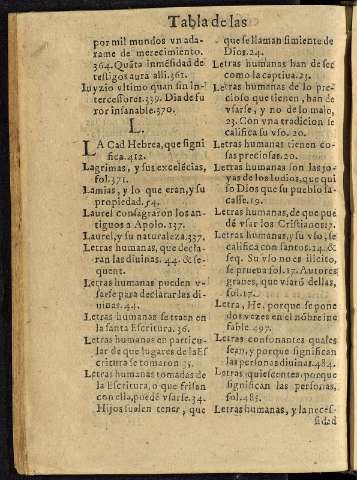 Tabla de las
por mil mundos vn ada-
rame de merecimiento.
364. Quāta inmēsidad de
testigos aura alli. 361.
Iuyzio vltimo quan sin in-
tercessores. 339. Dia de fu
ror insanable. 370.
L.
LA Cad Hebrea, que signi
fica. 412.
Lagrimas, y sus excelēcias,
fol. 371.
Lamias, y lo que eran, y su
propiedad. 54.
Laurel consagraron los an-
tiguos a Apolo. 137.
Laurel, y su naturaleza. 337.
Letras humanas, que decla
ran las diuinas. 44. & se-
quent.
Letras humanas pueden v-
sarse para declarar las di-
uinas. 44.
Letras humanas se traen en
la santa Escritura. 36.
Letras humanas en particu-
lar de que lugares de la Es
critura se tomaron 35.
Letras humanas tomadas de
la Escritura, o que frisan
con ella, puedē vsarse. 34.
Hijos suelen tener, que
que se llaman simiente de
Dios. 24.
Letras humanas han de ser
como la captiua. 23.
Letras humanas de lo pre-
cioso que tienen, han de
vsarse, y no de lo malo,
23. Con vna tradicion se
califica su vso. 20.
Letras humanas tienen co-
sas preciosas. 20.
Letras humanas son las jo-
yas de los Iudios, que qui
so Dios que su pueblo sa-
casse. 19.
Letras humanas, de que pue
dē vsar los Cristianos. 17.
Letras humanas, y su vso, se
califica con santos. 14. &
seq. Su vso no es illicito,
se prueua fol. 17. Autores
graues, que vsarō dellas,
fol. 17.
Letra, He, porque se pone
dos vezes en el nōbre ine
fable. 497.
Letras consonantes quales
sean, y porque significan
las personas diuinas. 484.
Letras quiescentes, porque
significan las personas,
fol. 485.
Letras humanas, y la neces-
sidad